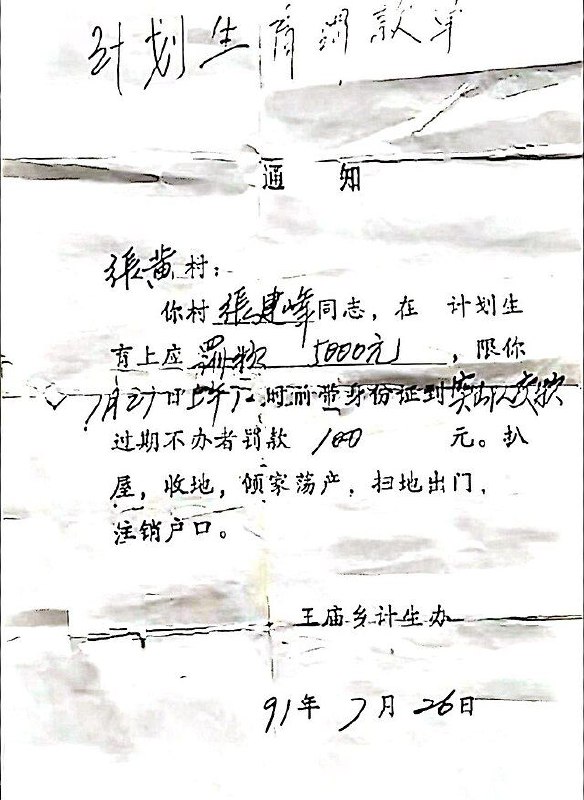 计划生育罚款单
通 知
张黄村：
你村张建峰同志，在 计划生
育上应罚款 5000元，限你
7月27日上午 时前带身份证到 交款
过期不办者罚款 100 元。扒
屋，收地，倾家荡产，扫地出门，
注销户口。
王庙乡计生办
91年7月26日